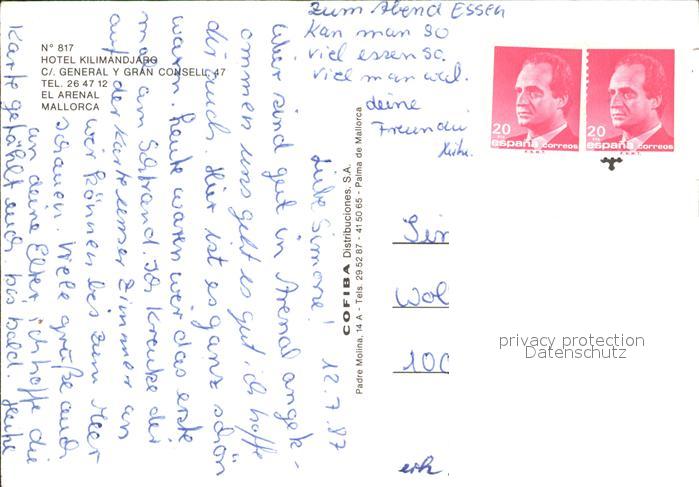 N° 817
HOTEL KILIMANDJARO
C/. GENERAL Y GRAN CONSELL, 47
TEL. 26 47 12
EL ARENAL
MALLORCA
12.7.87
Liebe Simone!
Wier sind gut in Arenal angek-
ommen uns geht es gut ich hoffe
dir auch. Hier ist es ganz schön
warm. Heute waren wier das erste
mal am Schtrand. Ich kreuke dir
auf der Karte unser Zimmer an
wir können bis zum Meer
schauen. Viele grüße auch
an deine Elter, ich hoffe die
Karte gefählt euch bis bald. Heute
zum Abend ESSEN
kan man so
viel essen so
viel man wil.
deine
Freundin
COFIBA Distribuciones, S.A.
Padre Molina, 14 A - Tels. 29 52 87 - 41 50 65 - Palma de Mallorca
20
españa correos
20
españa correos
Wol
100
privacy protection
Datenschutz